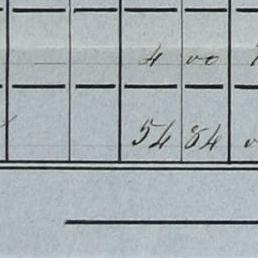 4 00
54 84